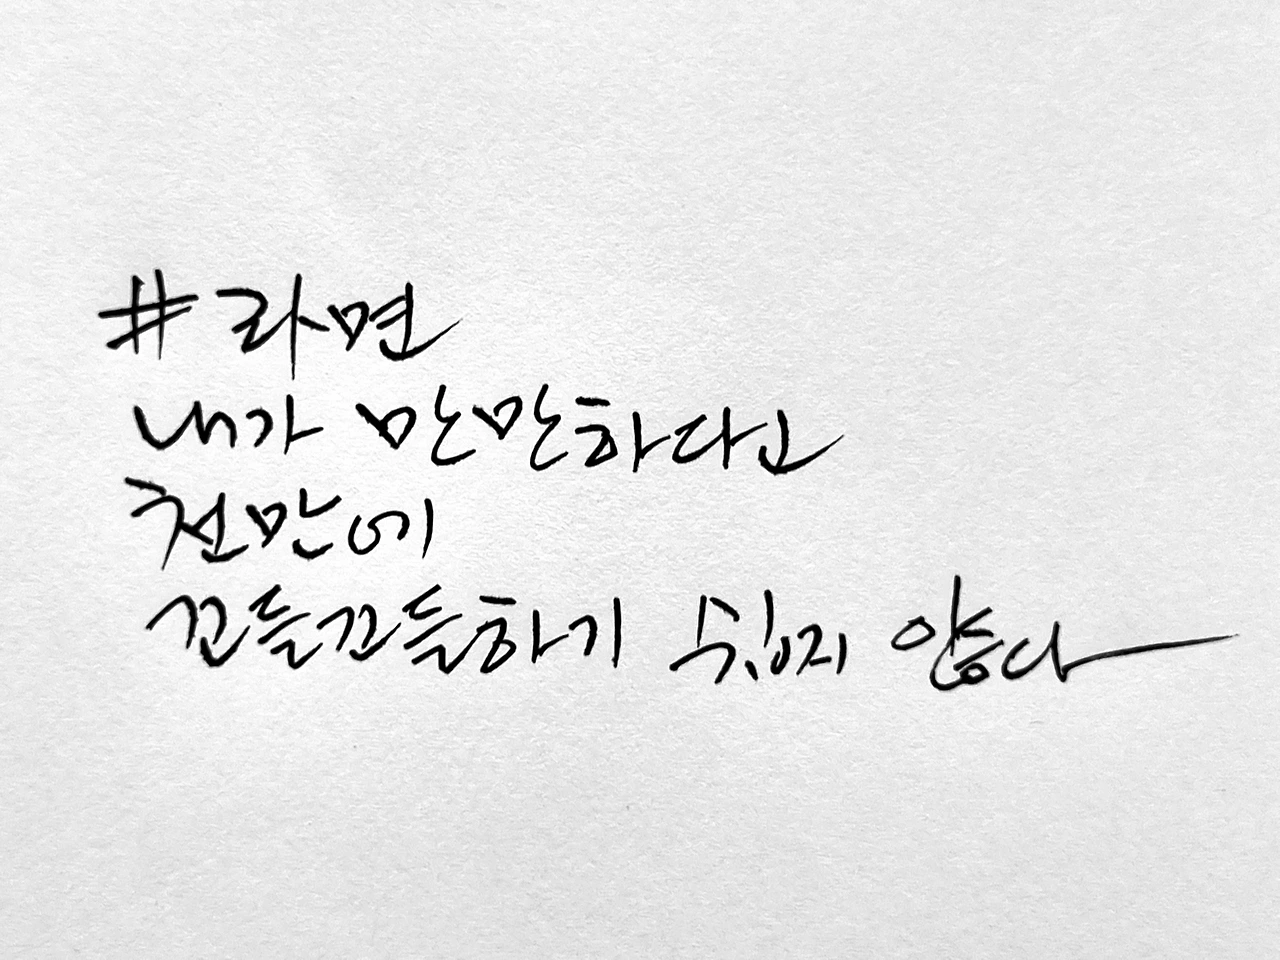 #라면
내가 만만하다고
천만에
꼬들꼬들하기 쉽지 않다